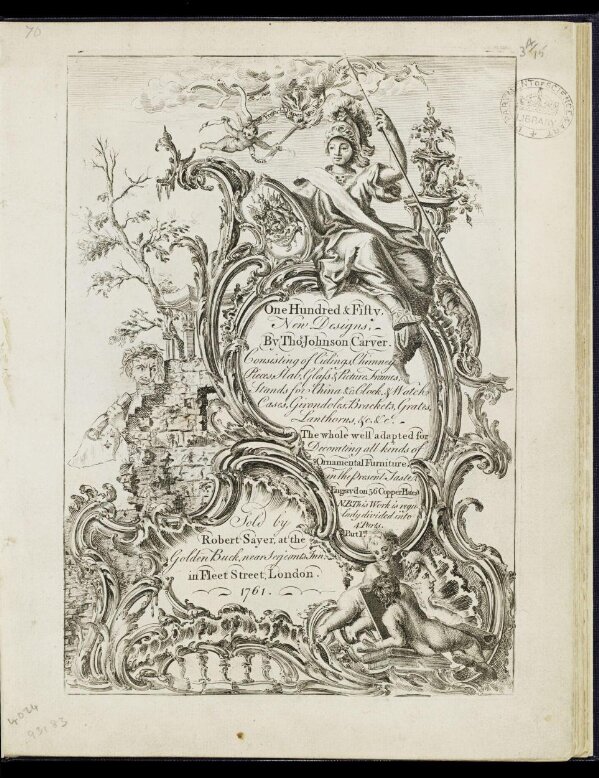 70
One Hundred & Fifty,
New Designs,
By Thos. Johnson Carver.
Consisting of Cielings, Chimney
Pieces, Slab, Glass & Picture Frames,
Stands for China &c. Clock, & Watch
Cases, Girondoles, Brackets, Grates,
Lanthorns, &c. & c.
The whole well adapted for
Decorating all kinds of
Ornamental Furniture,
in the Present Taste,
Engrav'd on 56 Copper Plates
N.B. This Work is regu-
larly divided into
4 Parts.
Part 1st
Sold by
Robert Sayer, at the
Golden Buck, near Serjeants Inn
in Fleet Street, London.
1761.
4024
93.83